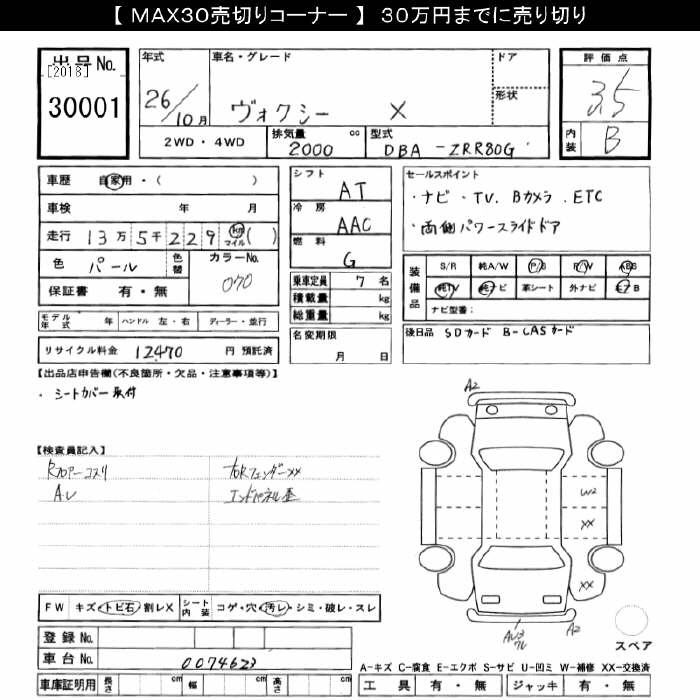 【 MAX30売切りコーナー 】 30万円までに売り切り
出品No. [2018] 30001
年式 26/10月
車名・グレード ヴォクシー X
ドア
形状
評価点 3.5
内装 B
2WD・4WD
排気量 2000 cc
型式 DBA-ZRR80G
車歴 自家用・( )
車検 年 月
走行 13万5千229 km マイル ( )
色 パール 色替 カラーNo. 070
保証書 有・無
シフト AT
冷房 AAC
燃料 G
乗車定員 7名
積載量 kg
総重量 kg
名変期限 月 日
セールスポイント
・ナビ・TV. Bカメラ. ETC
・両側パワースライドドア
装備品 S/R 純A/W P/S P/W ABS
純TV 純ナビ 革シート 外ナビ エアB
ナビ型番:
後日品 SDカード B-CASカード
モデル年式 年 ハンドル 左・右 ディーラー・並行
リサイクル料金 12470 円 預託済
【出品店申告欄(不良箇所・欠品・注意事項等)】
・シートカバー取付
【検査員記入】
Rフロアーコスリ
AU
右Rフェンダーxx
エンドパネル歪
A2
W2
XX
XX
A2
FW キズ・トビ石・割レX
シート内装 コゲ・穴・汚レ・シミ・破レ・スレ
登録No.
車台No. 0074623
車庫証明用 長さ cm 幅 cm 高さ cm
スペア
A-キズ C-腐食 E-エクボ S-サビ U-凹ミ W-補修 XX-交換済
工具 有・無 ジャッキ 有・無